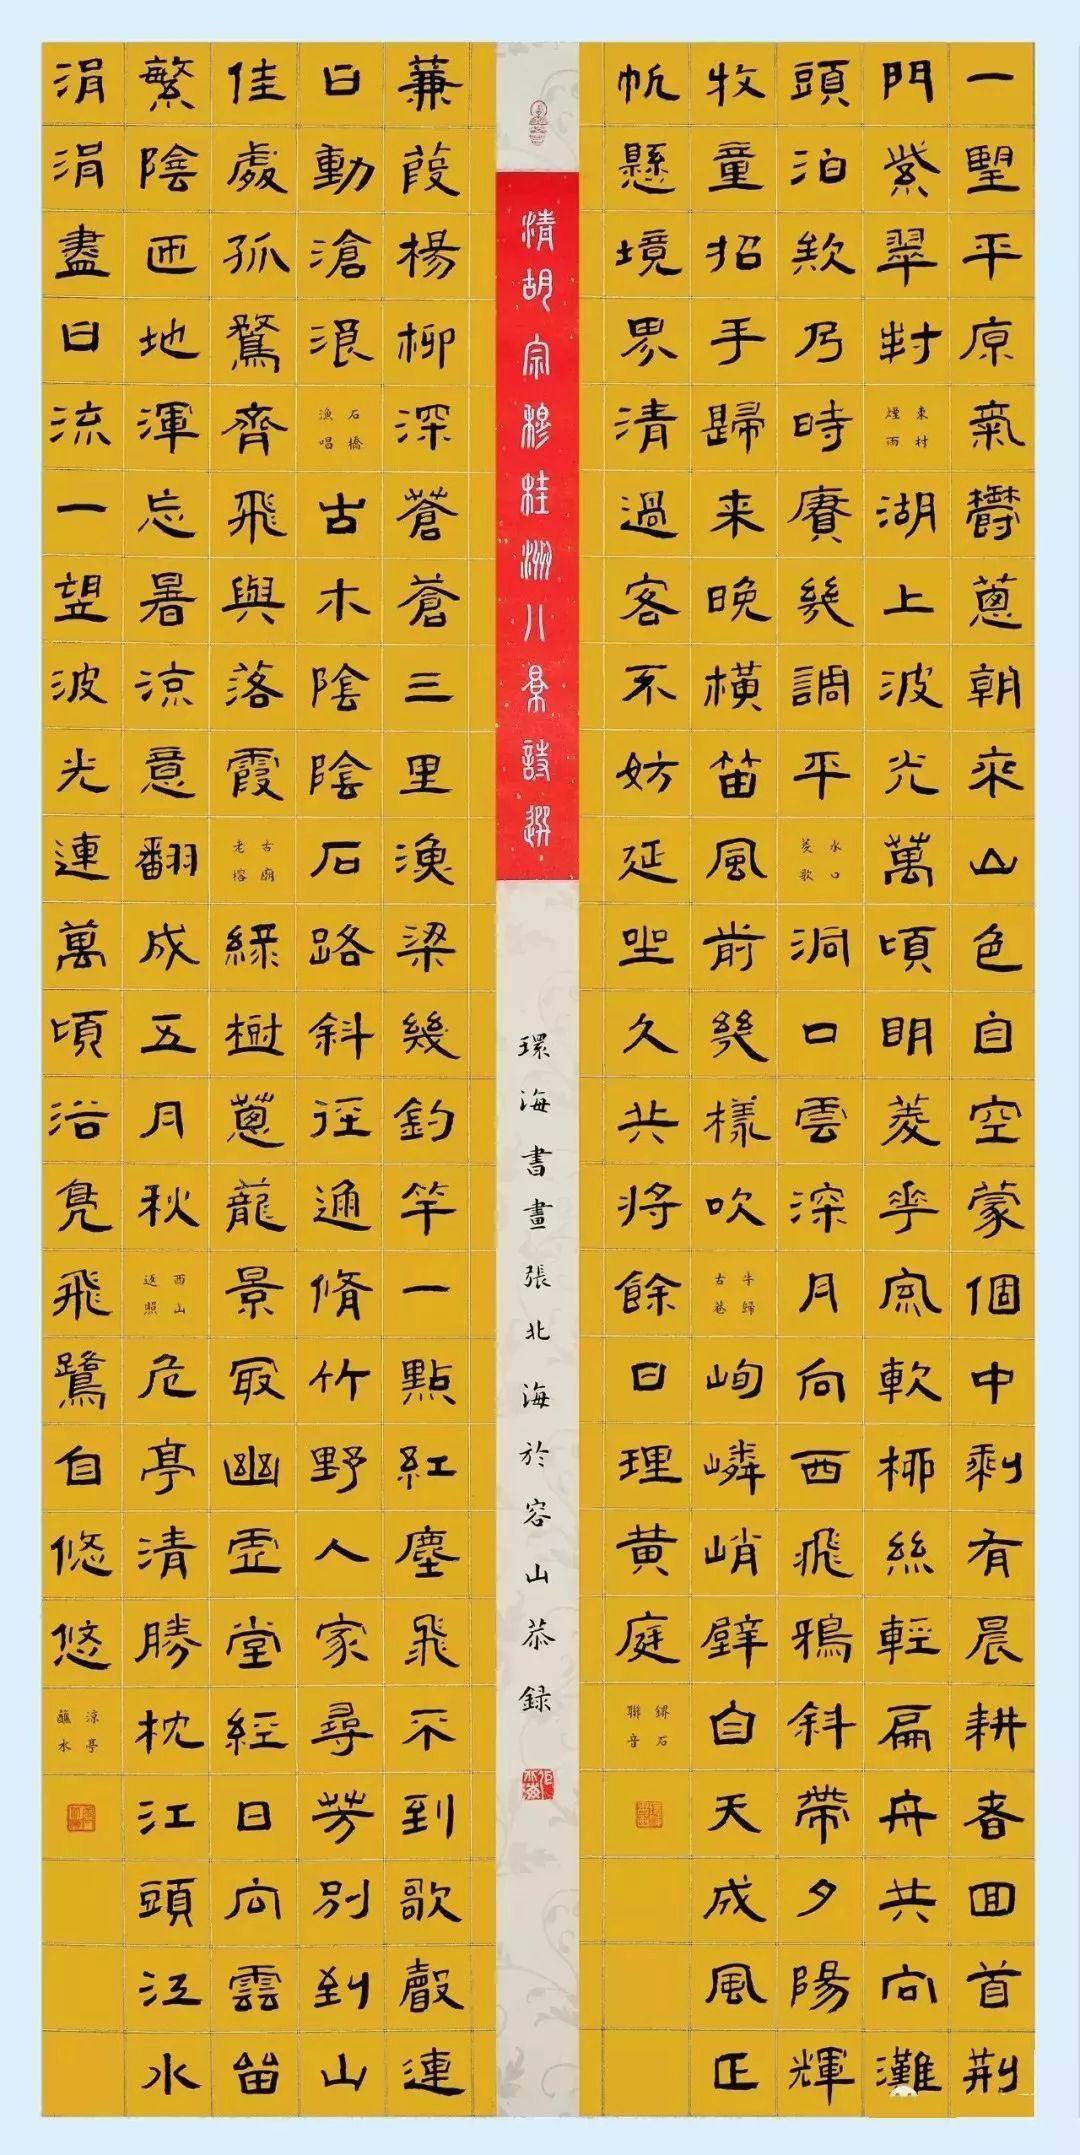 一望平原氣鬱蔥朝來山色自空蒙個中剩有晨耕者回首荆
門紫翠封東村煙雨湖上波光萬頃明菱花風軟柳絲輕扁舟共向灘
頭泊欸乃時賡幾調平水口菱歌洞口雲深月向西飛鴉斜帶夕陽輝
牧童招手歸来晚橫笛風前幾樣吹牛歸古巷峋嶙峭壁自天成風正
帆懸境界清過客不妨延坐久共將餘日理黃庭石聯音
清胡宗穆桂洲八景詩選
環海書畫張北海於容山恭録
蒹葭楊柳深蒼蒼三里漁梁幾釣竿一點紅塵飛不到歌聲連
日動滄浪石橋漁唱古木陰陰石路斜徑通脩竹野人家尋芳別到山
佳處孤鶩齊飛與落霞古廟老榕綠樹蔥蘢景最幽虛堂經日向雲留
繁陰匝地渾忘暑涼意翻成五月秋西山返照危亭清勝枕江頭江水
涓涓盡日流一望波光連萬頃浴鳧飛鷺自悠悠涼亭蘸水